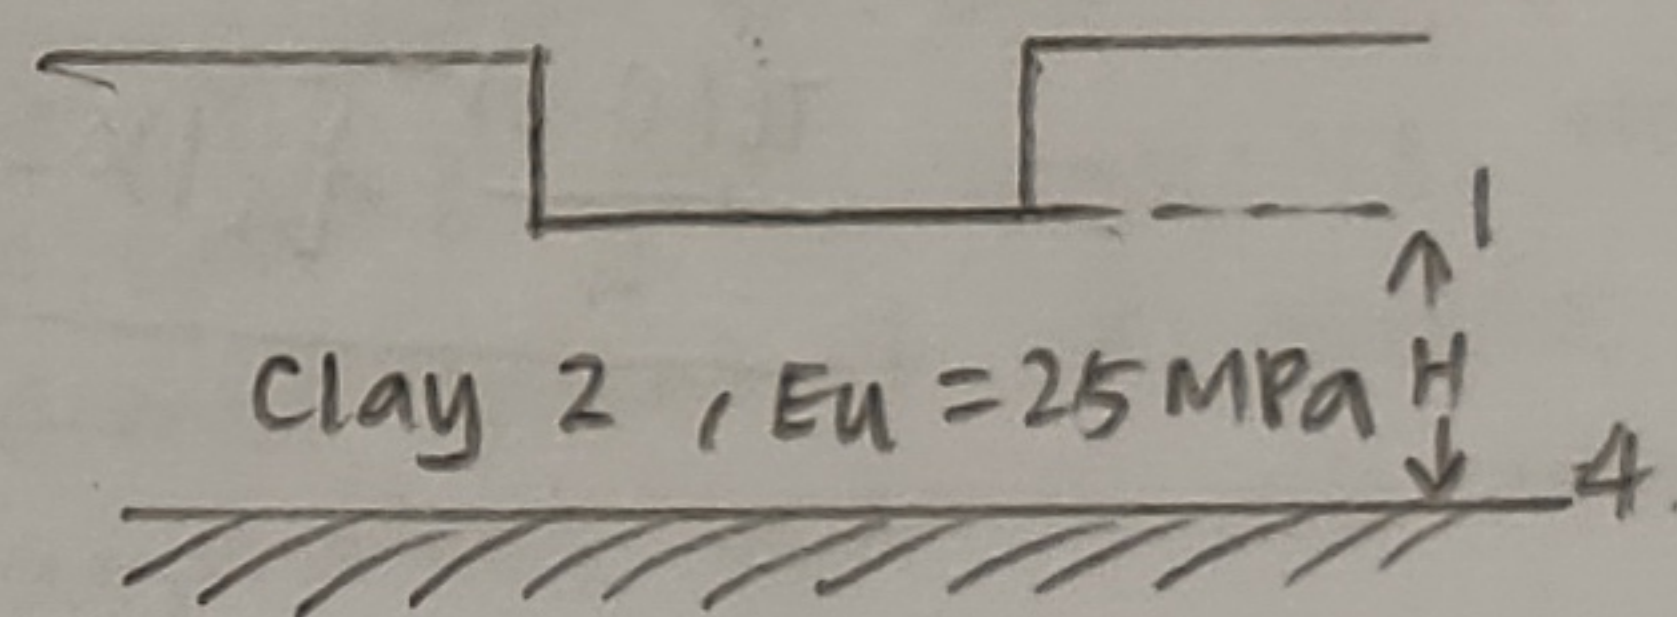 1
Clay 2, Eu = 25 MPa H
4